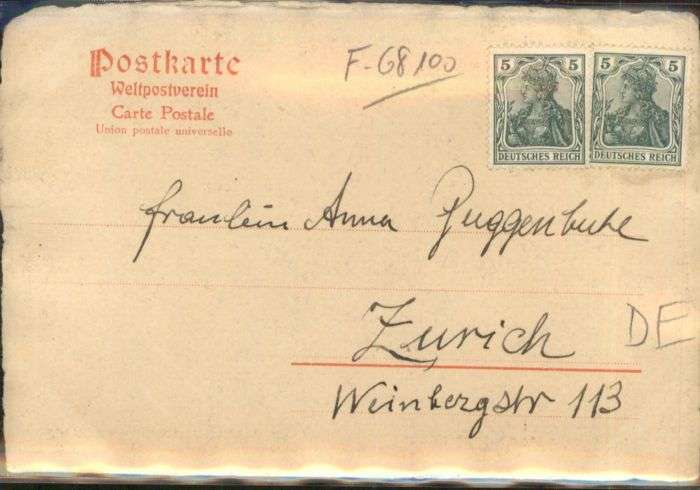 Postkarte
Weltpostverein
Carte Postale
Union postale universelle
F-68100
5 5
DEUTSCHES REICH
5 5
DEUTSCHES REICH
fraulein Anna Guggenbuhl
Zurich
DE
Weinbergstr 113